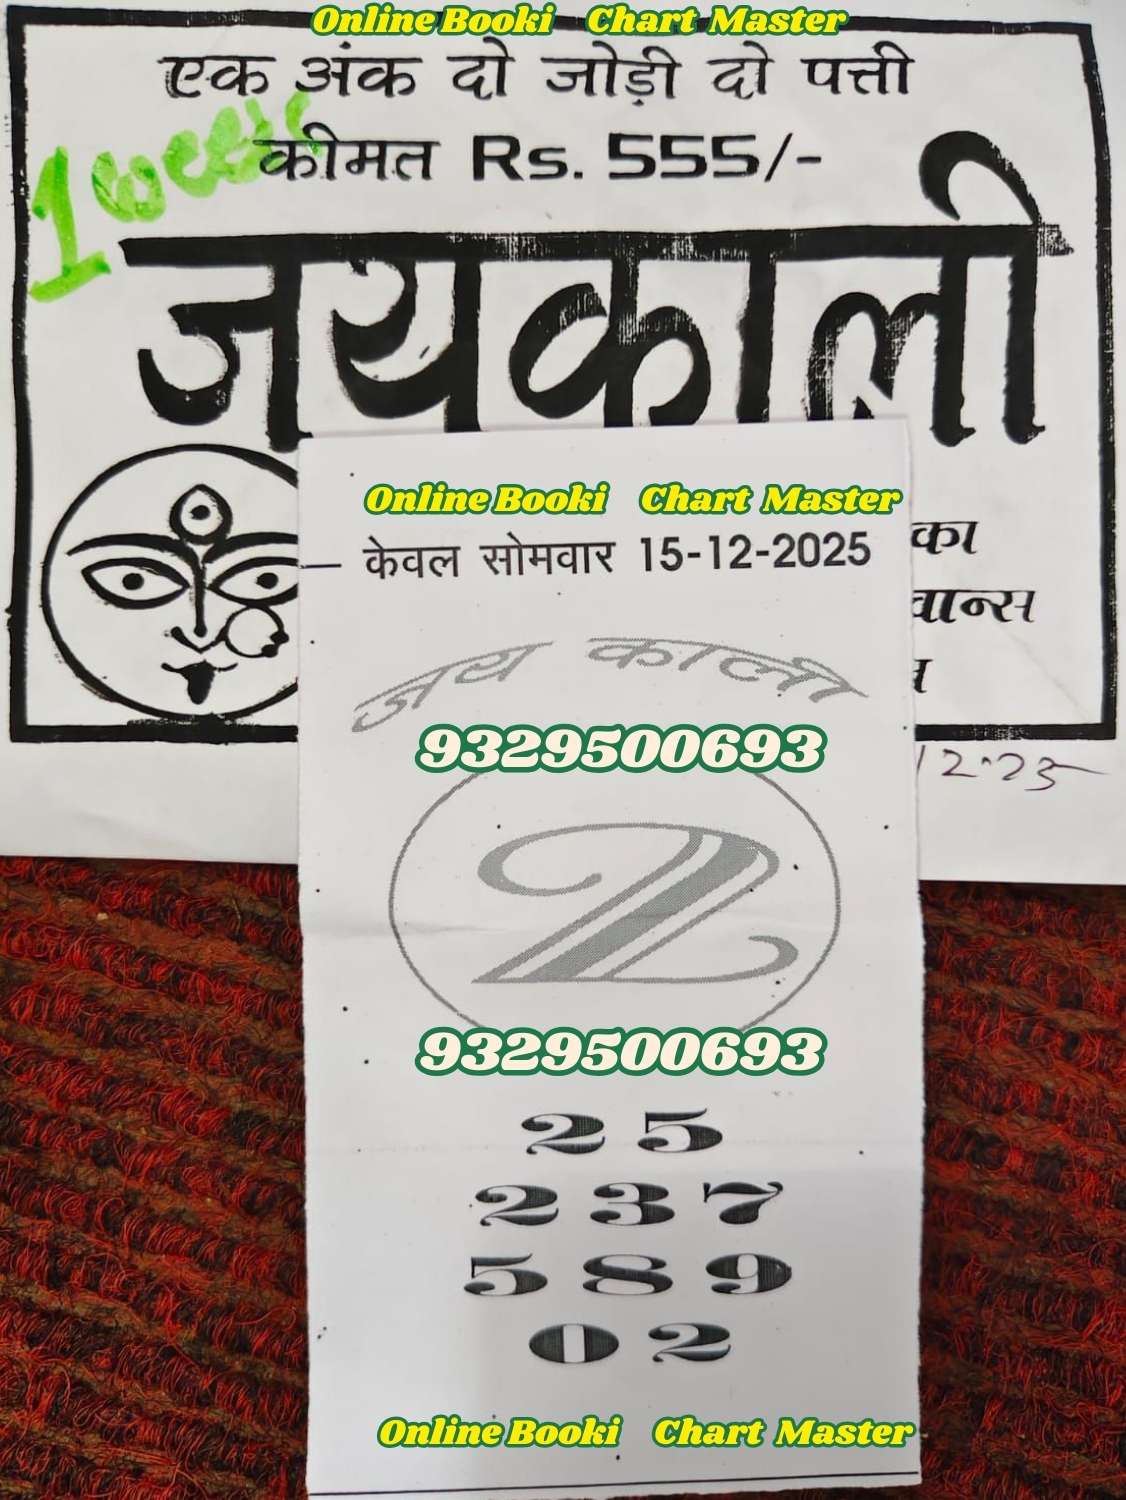 Online Booki Chart Master
एक अंक दो जोड़ी दो पत्ती
1 week
कीमत Rs. 555/-
जयकाली
Online Booki Chart Master
केवल सोमवार 15-12-2025
का
वान्स
जय काली
9329500693
12.25
2
9329500693
25
237
589
02
Online Booki Chart Master